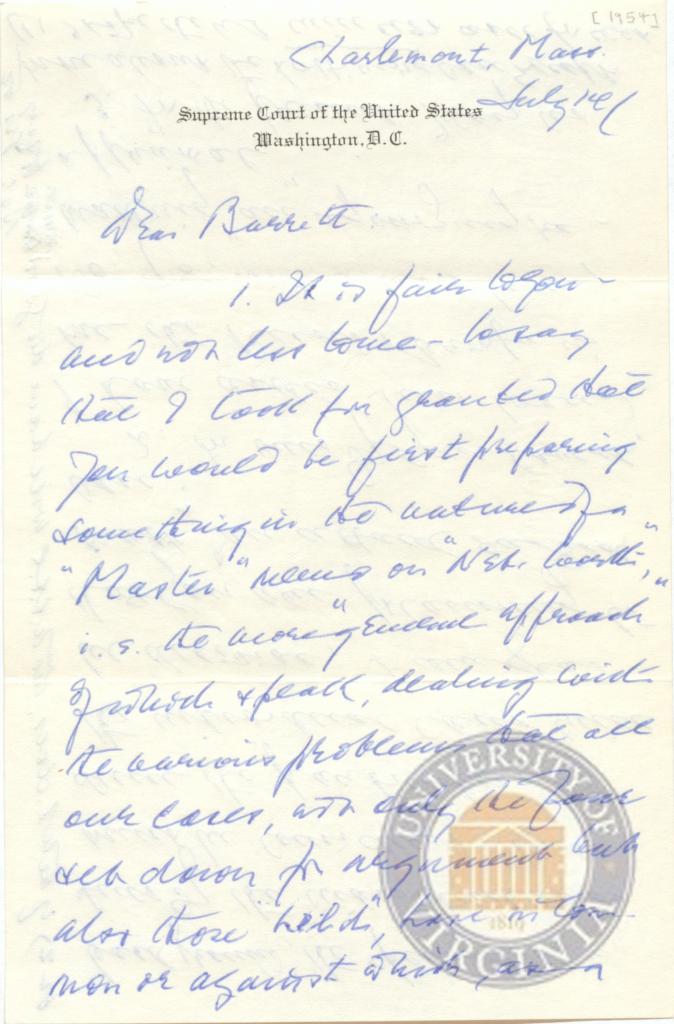 [1954]
Charlemont, Mass.
July 14/
Supreme Court of the United States
Washington, D.C.
Dear Barrett
1. It is fair to you –
and not less to me – to say
that I took for granted that
you would be first preparing
something in the nature of a
"Master" memo on "Net Worth,"
i.e. the more "general approach
of which I speak, dealing with
the various problems that all
our cases, not only the four
set down for argument but
also those "held", have in com-
mon or against which, as a
UNIVERSITY OF VIRGINIA
1819